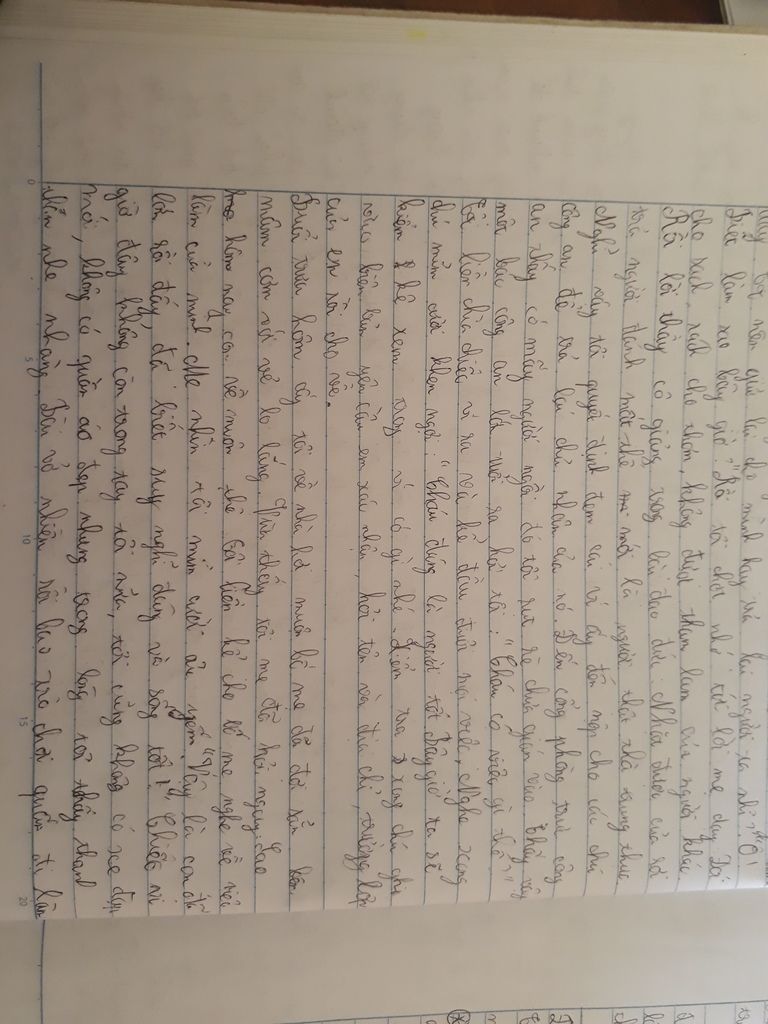 này bọn nên giữ lại cho mình hay trả lại người ta nhỉ? Ôi
Biết làm sao bây giờ?" Rồi tôi chợt nhớ tới lời mẹ dạy Đói
cho sạch, rách cho thơm, không được tham lam của người khác
Rồi lời thầy cô giảng trong bài đạo đức: Nhặt được của rơi
trả người đánh mất thế mới là người thật thà trung thực
Nghĩ vậy tôi quyết định đem cái ví ấy đến nộp cho các chú
công an để trả lại chủ nhân của nó. Đến công phòng trực công
an thấy có mấy người ngồi đó tôi rụt rè chưa dám vào thấy vậy
một bác công an lớn tuổi ra hỏi tôi: "Cháu có việc gì thế?"
Tôi liền chìa chiếc ví ra và kể đầu đuôi mọi việc, Nghe xong
chú mỉm cười khen ngợi: "Cháu đúng là người tốt Bây giờ ta sẽ
kiểm kê xem trong ví có gì nhé. Kiểm tra xong chú ghi
vào biên bản yêu cầu em xác nhận, hỏi tên và địa chỉ, trường lớp
của em rồi cho về.
Buổi trưa hôm ấy tôi về nhà hơi muộn bố mẹ đã đợi sẵn bên
mâm cơm với vẻ lo lắng. Vừa thấy tôi mẹ đã hỏi ngay: Sao
hôm nay con về muộn thế Tôi liền kể cho bố mẹ nghe về việc
làm của mình. Mẹ nhìn tôi mỉm cười âu yếm "Vậy là con đã
lớn rồi đấy, đã biết suy nghĩ đúng và sống tốt!" Chiếc ví
giờ đây không còn trong tay tôi nữa, tôi cũng không có xe đạp
mới, không có quần áo đẹp nhưng trong lòng tôi thấy thanh
thản nhẹ nhàng. Bởi vì nhiên rồi bao trò chơi quần tụ lần